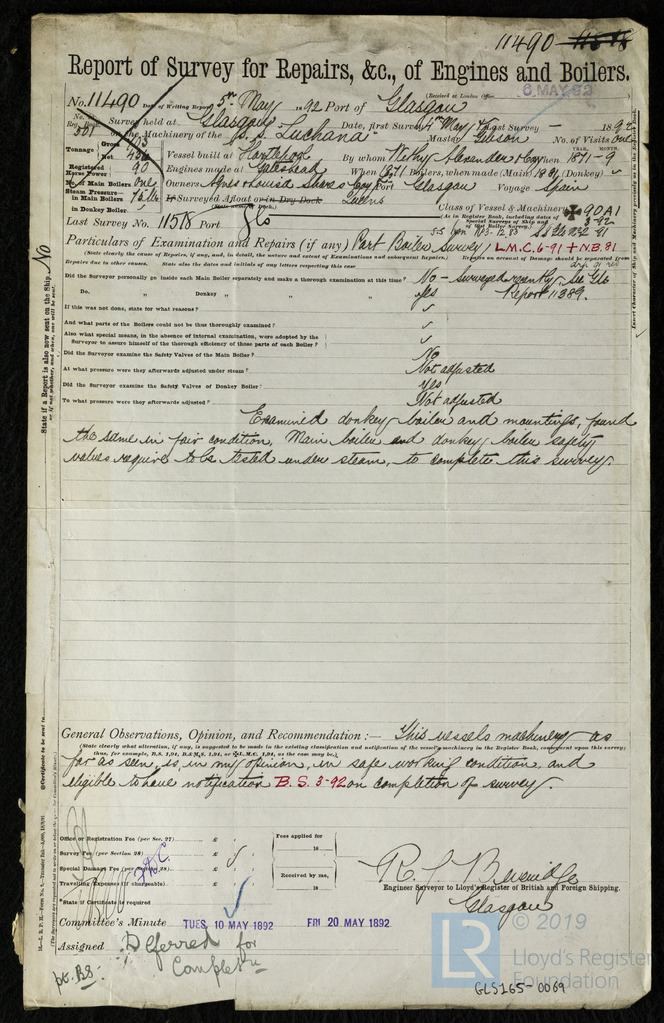 11490
Report of Survey for Repairs, &c., of Engines and Boilers.
(Received at London Office
6 MAY 92
No. 11490 Date of Writing Report 5th May 1892 Port of Glasgow
No. in Reg. Book 501 Survey held at Glasgow Date, first Survey 4th May Last Survey — 1892
on the Machinery of the S.S. Luchana Master Gibson No. of Visits One
Tonnage Gross
Net
Vessel built at Hartlepool By whom When 1871-9
Registered Horse Power 90
Engines made at Gateshead When 1871 Boilers, when made (Main) 1881 (Donkey) ✓
No. of Main Boilers One
Owners Port Glasgow Voyage Spain
Steam Pressure— in Main Boilers
in Donkey Boiler
If Surveyed Afloat or in Dry Dock Queens
(State name of Dock.)
Class of Vessel & Machinery 90A1
(As in Register Book, including dates of Special Surveys of Ship and of last Boiler Survey.)
3-92
Last Survey No. 11518 Port Gls
Particulars of Examination and Repairs (if any) Part Boiler Survey L.M.C. 6-91 + N.B. 81
(State clearly the cause of Repairs, if any, and, in detail, the nature and extent of Examinations and subsequent Repairs. Repairs on account of Damage should be separated from
Repairs due to other causes. State also the dates and initials of any letters respecting this case
Did the Surveyor personally go inside each Main Boiler separately and make a thorough examination at this time? No — surveyed recently. See Gls
Do. „ Donkey „ „ „ „ yes Report 11389.
If this was not done, state for what reasons? ✓
And what parts of the Boilers could not be thoroughly examined? ✓
Also what special means, in the absence of internal examination, were adopted by the
Surveyor to assure himself of the thorough efficiency of those parts of each Boiler? ✓
Did the Surveyor examine the Safety Valves of the Main Boiler? No
At what pressure were they afterwards adjusted under steam? Not adjusted
Did the Surveyor examine the Safety Valves of Donkey Boiler? yes
To what pressure were they afterwards adjusted? Not adjusted
Examined donkey boiler and mountings, found
the same in fair condition, Main boiler and donkey boiler safety
valves require to be tested under steam, to complete this survey.
General Observations, Opinion, and Recommendation:— This vessels machinery as
(State clearly what alteration, if any, is suggested to be made in the existing classification and notification of the vessel's machinery in the Register Book, consequent upon this survey;
thus, for example, B.S. 1,94, B.&M.S. 1,94, or ✠L.M.C. 1,94, as the case may be.)
far as seen, is, in my opinion, in safe working condition, and
eligible to have notification B.S. 3-92 on completion of survey.
Office or Registration Fee (per Sec. 27) £
Fees applied for
18
Survey Fee (per Section 28) £
Special Damage Fee (per Section 28) £
Received by me,
Travelling Expenses (if chargeable) £
18
State if Certificate is required
Engineer Surveyor to Lloyd's Register of British and Foreign Shipping.
Glasgow
Committee's Minute TUES. 10 MAY 1892 FRI. 20 MAY 1892
Assigned Deferred for
Completn
pt. BS:
State if a Report is also now sent on the Ship. No
© 2019
LR
Lloyd's Register
Foundation
GLS165-0069